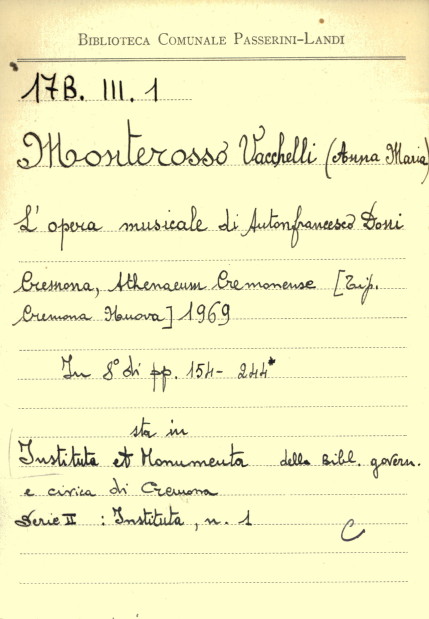 BIBLIOTECA COMUNALE PASSERINI-LANDI
17B. III. 1
Monterosso Vacchelli (Anna Maria)
L'opera musicale di Antonfrancesco Doni
Cremona, Athenaeum Cremonense [Tip.
Cremona Nuova] 1969
In 8° di pp. 154-244*
sta in
Instituta et Monumenta della Bibl. govern.
e civica di Cremona
Serie II : Instituta, n. 1
C